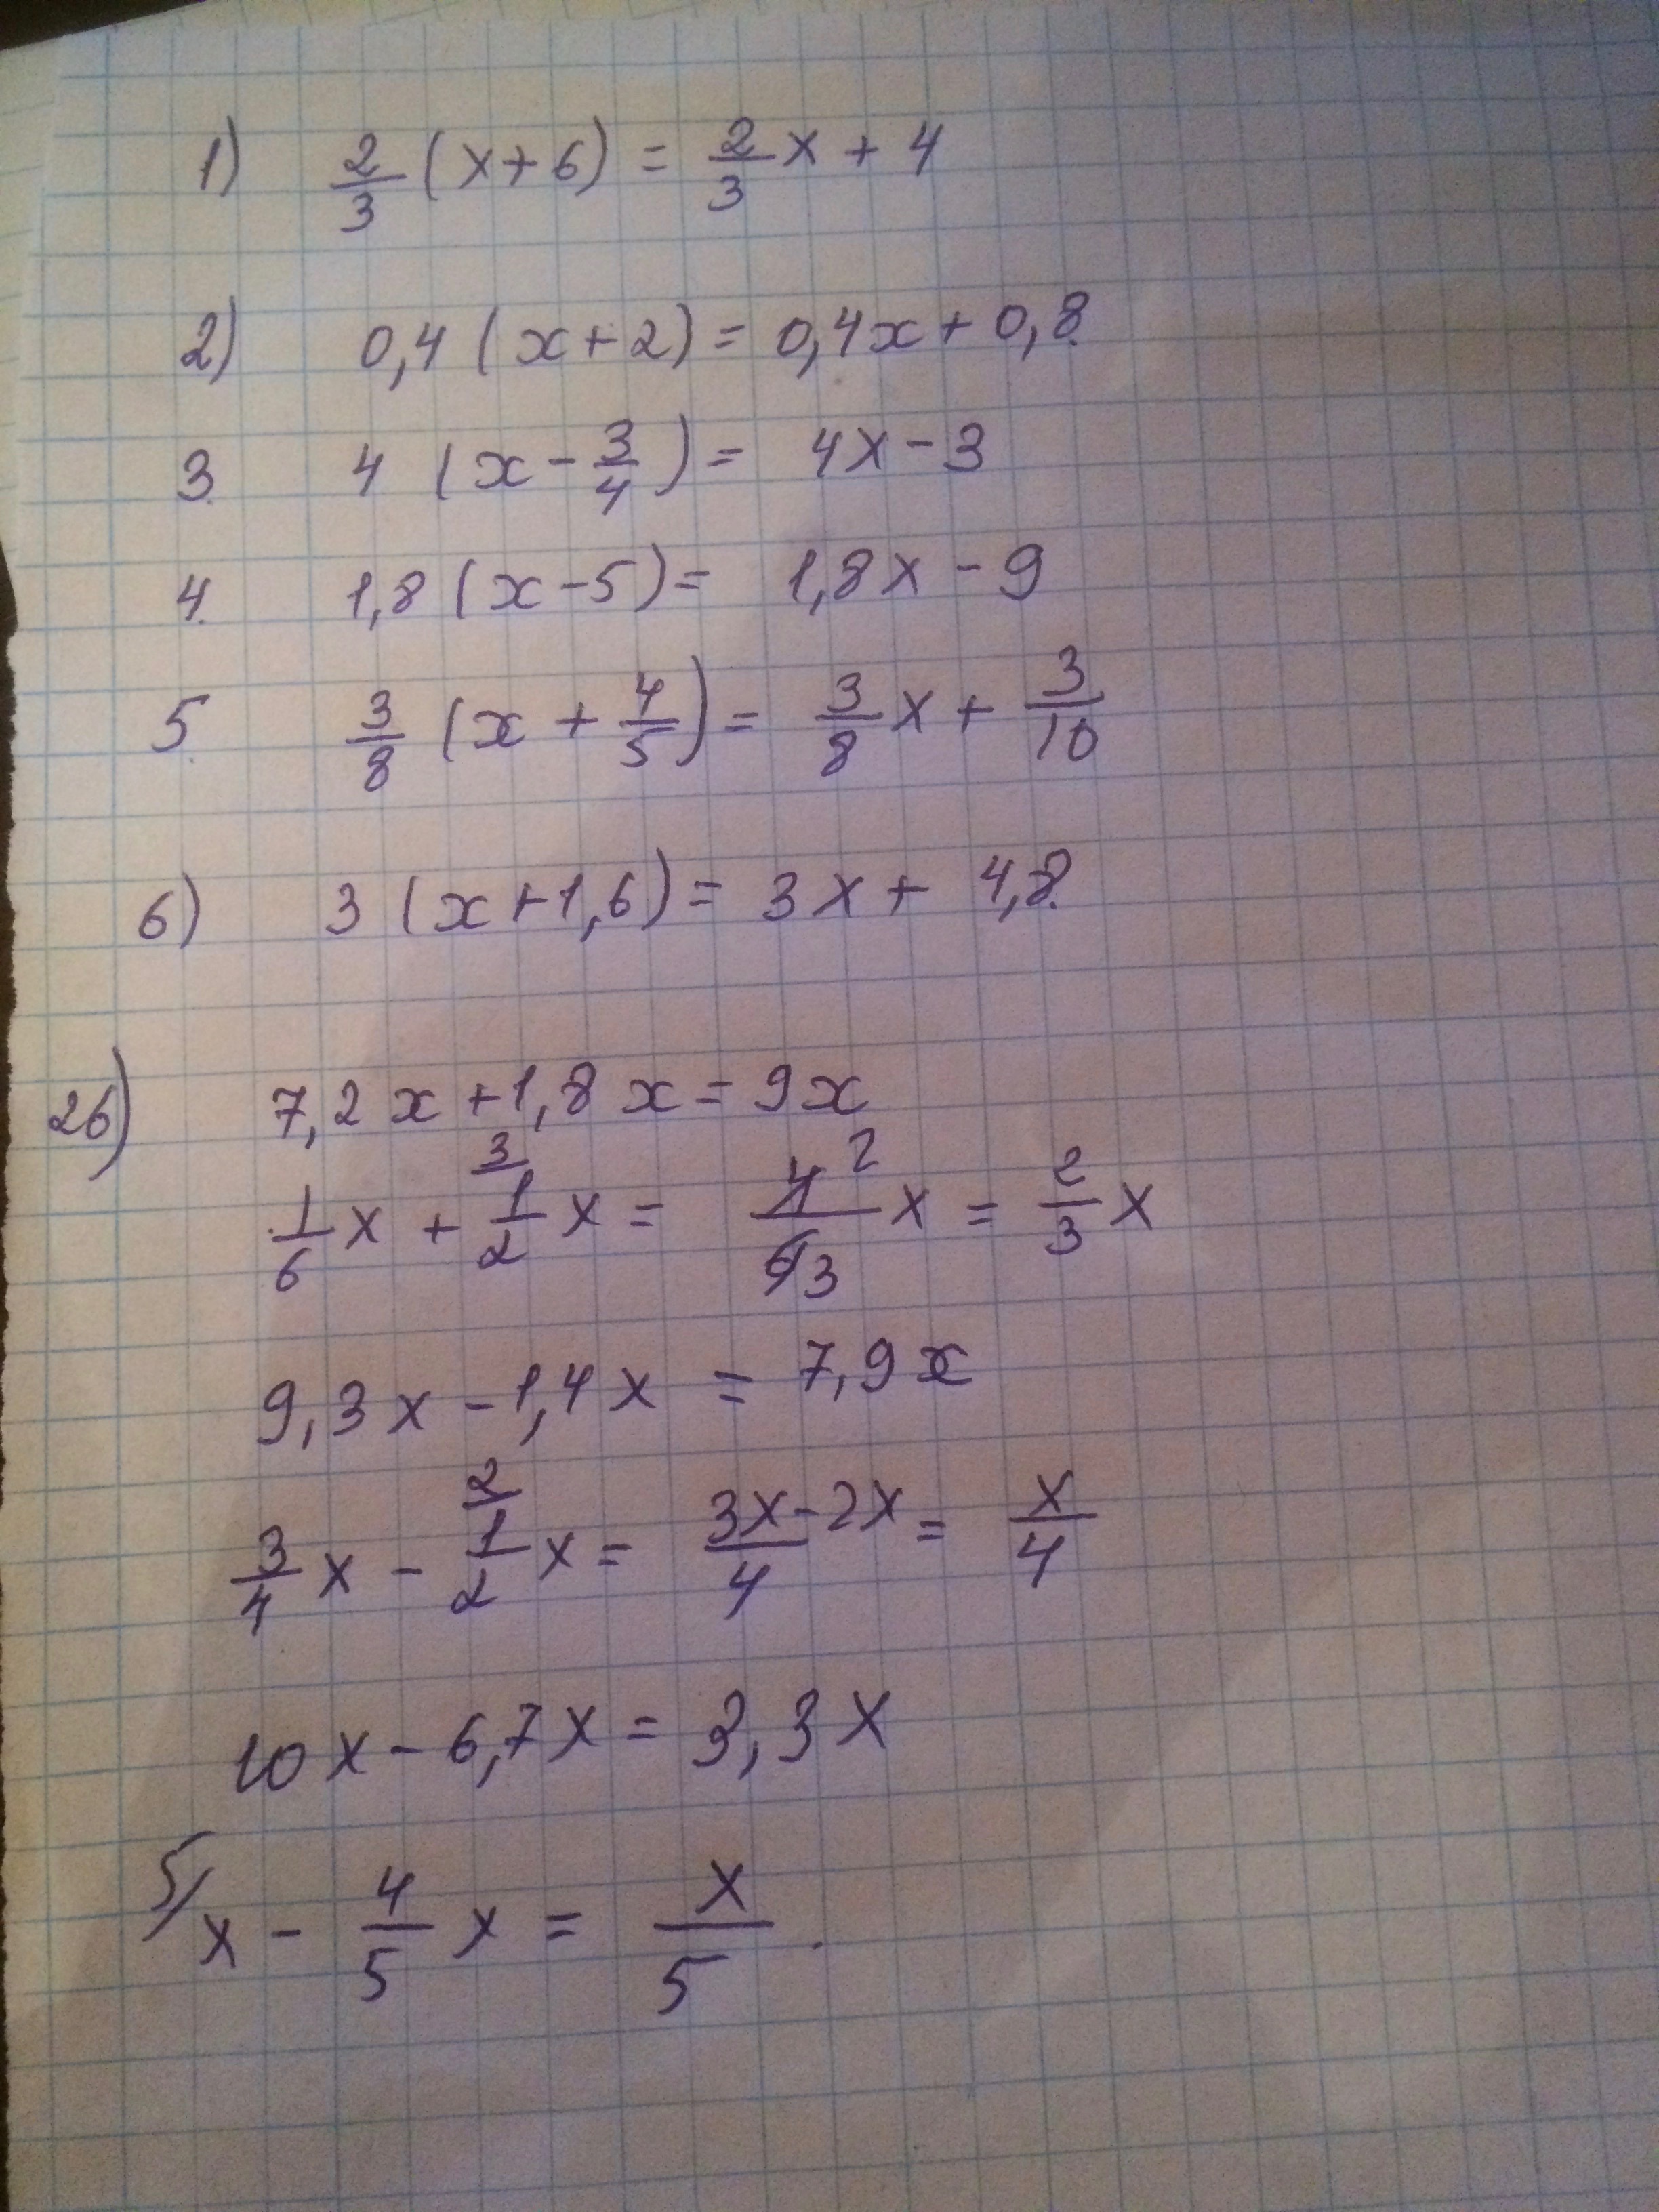 1) 2/3 (x+6) = 2/3 x + 4
2) 0,4 (x+2) = 0,4x + 0,8
3. 4 (x - 3/4) = 4x - 3
4. 1,8 (x-5) = 1,8x - 9
5. 3/8 (x + 4/5) = 3/8 x + 3/10
6) 3 (x+1,6) = 3x + 4,8
26) 7,2x + 1,8x = 9x
1/6 x + 3/ 1/2 x = 4 2/6 3 x = 2/3 x
9,3x - 1,4x = 7,9x
3/4 x - 2/ 1/2 x = 3x-2x/4 = x/4
10x - 6,7x = 3,3x
5/ x - 4/5 x = x/5 .